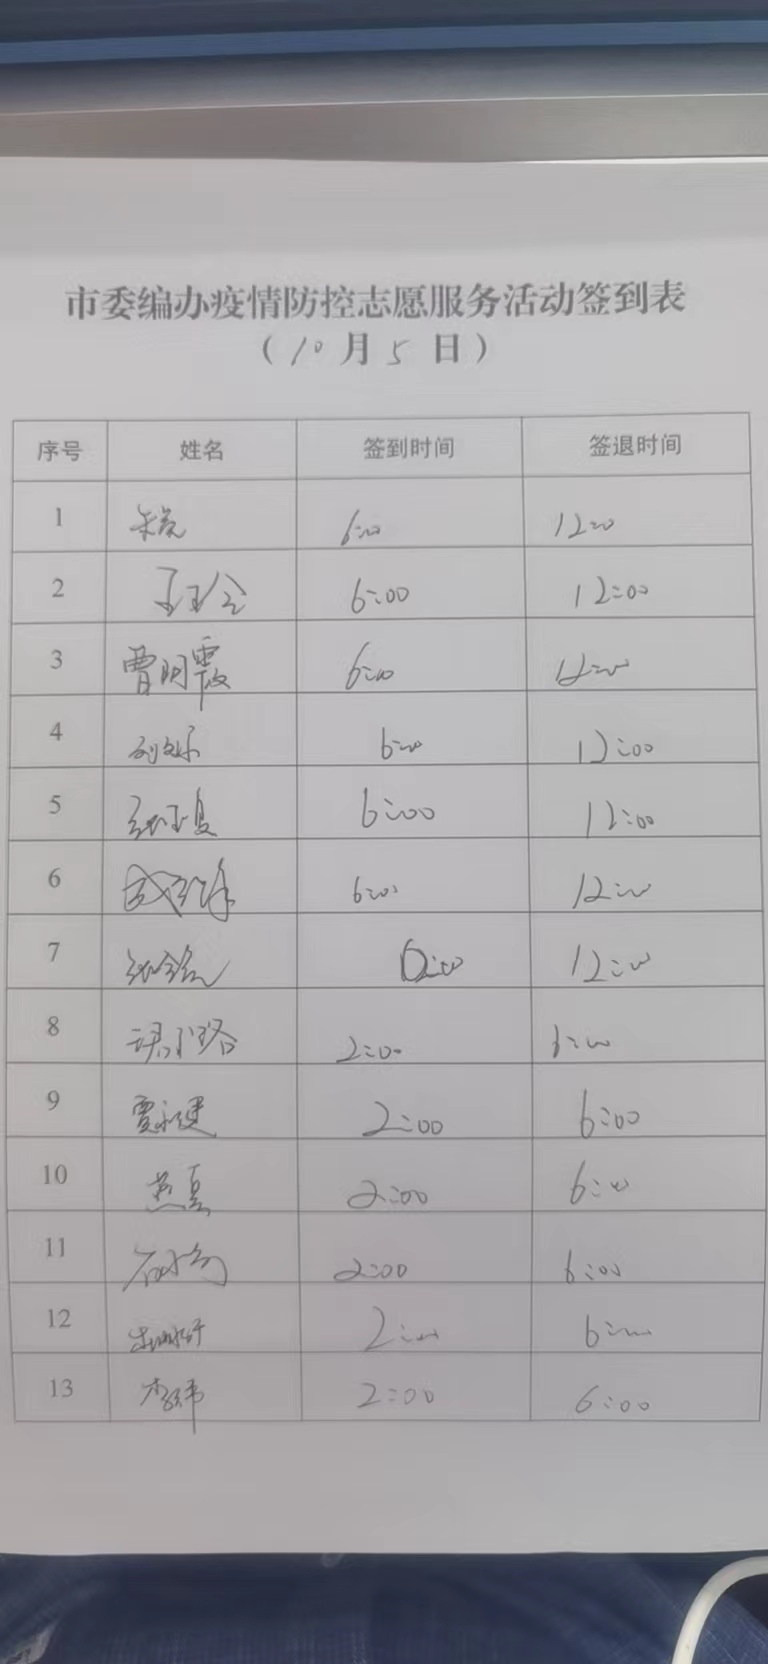 市委编办疫情防控志愿服务活动签到表
（10月5日）
序号 姓名 签到时间 签退时间
1 6:00 12:00
2 6:00 12:00
3 曹明霞 6:00 12:00
4 6:00 12:00
5 6:00 12:00
6 6:00 12:00
7 6:00 12:00
8 2:00 6:00
9 2:00 6:00
10 燕夏 2:00 6:00
11 2:00 6:00
12 2:00 6:00
13 李纬 2:00 6:00